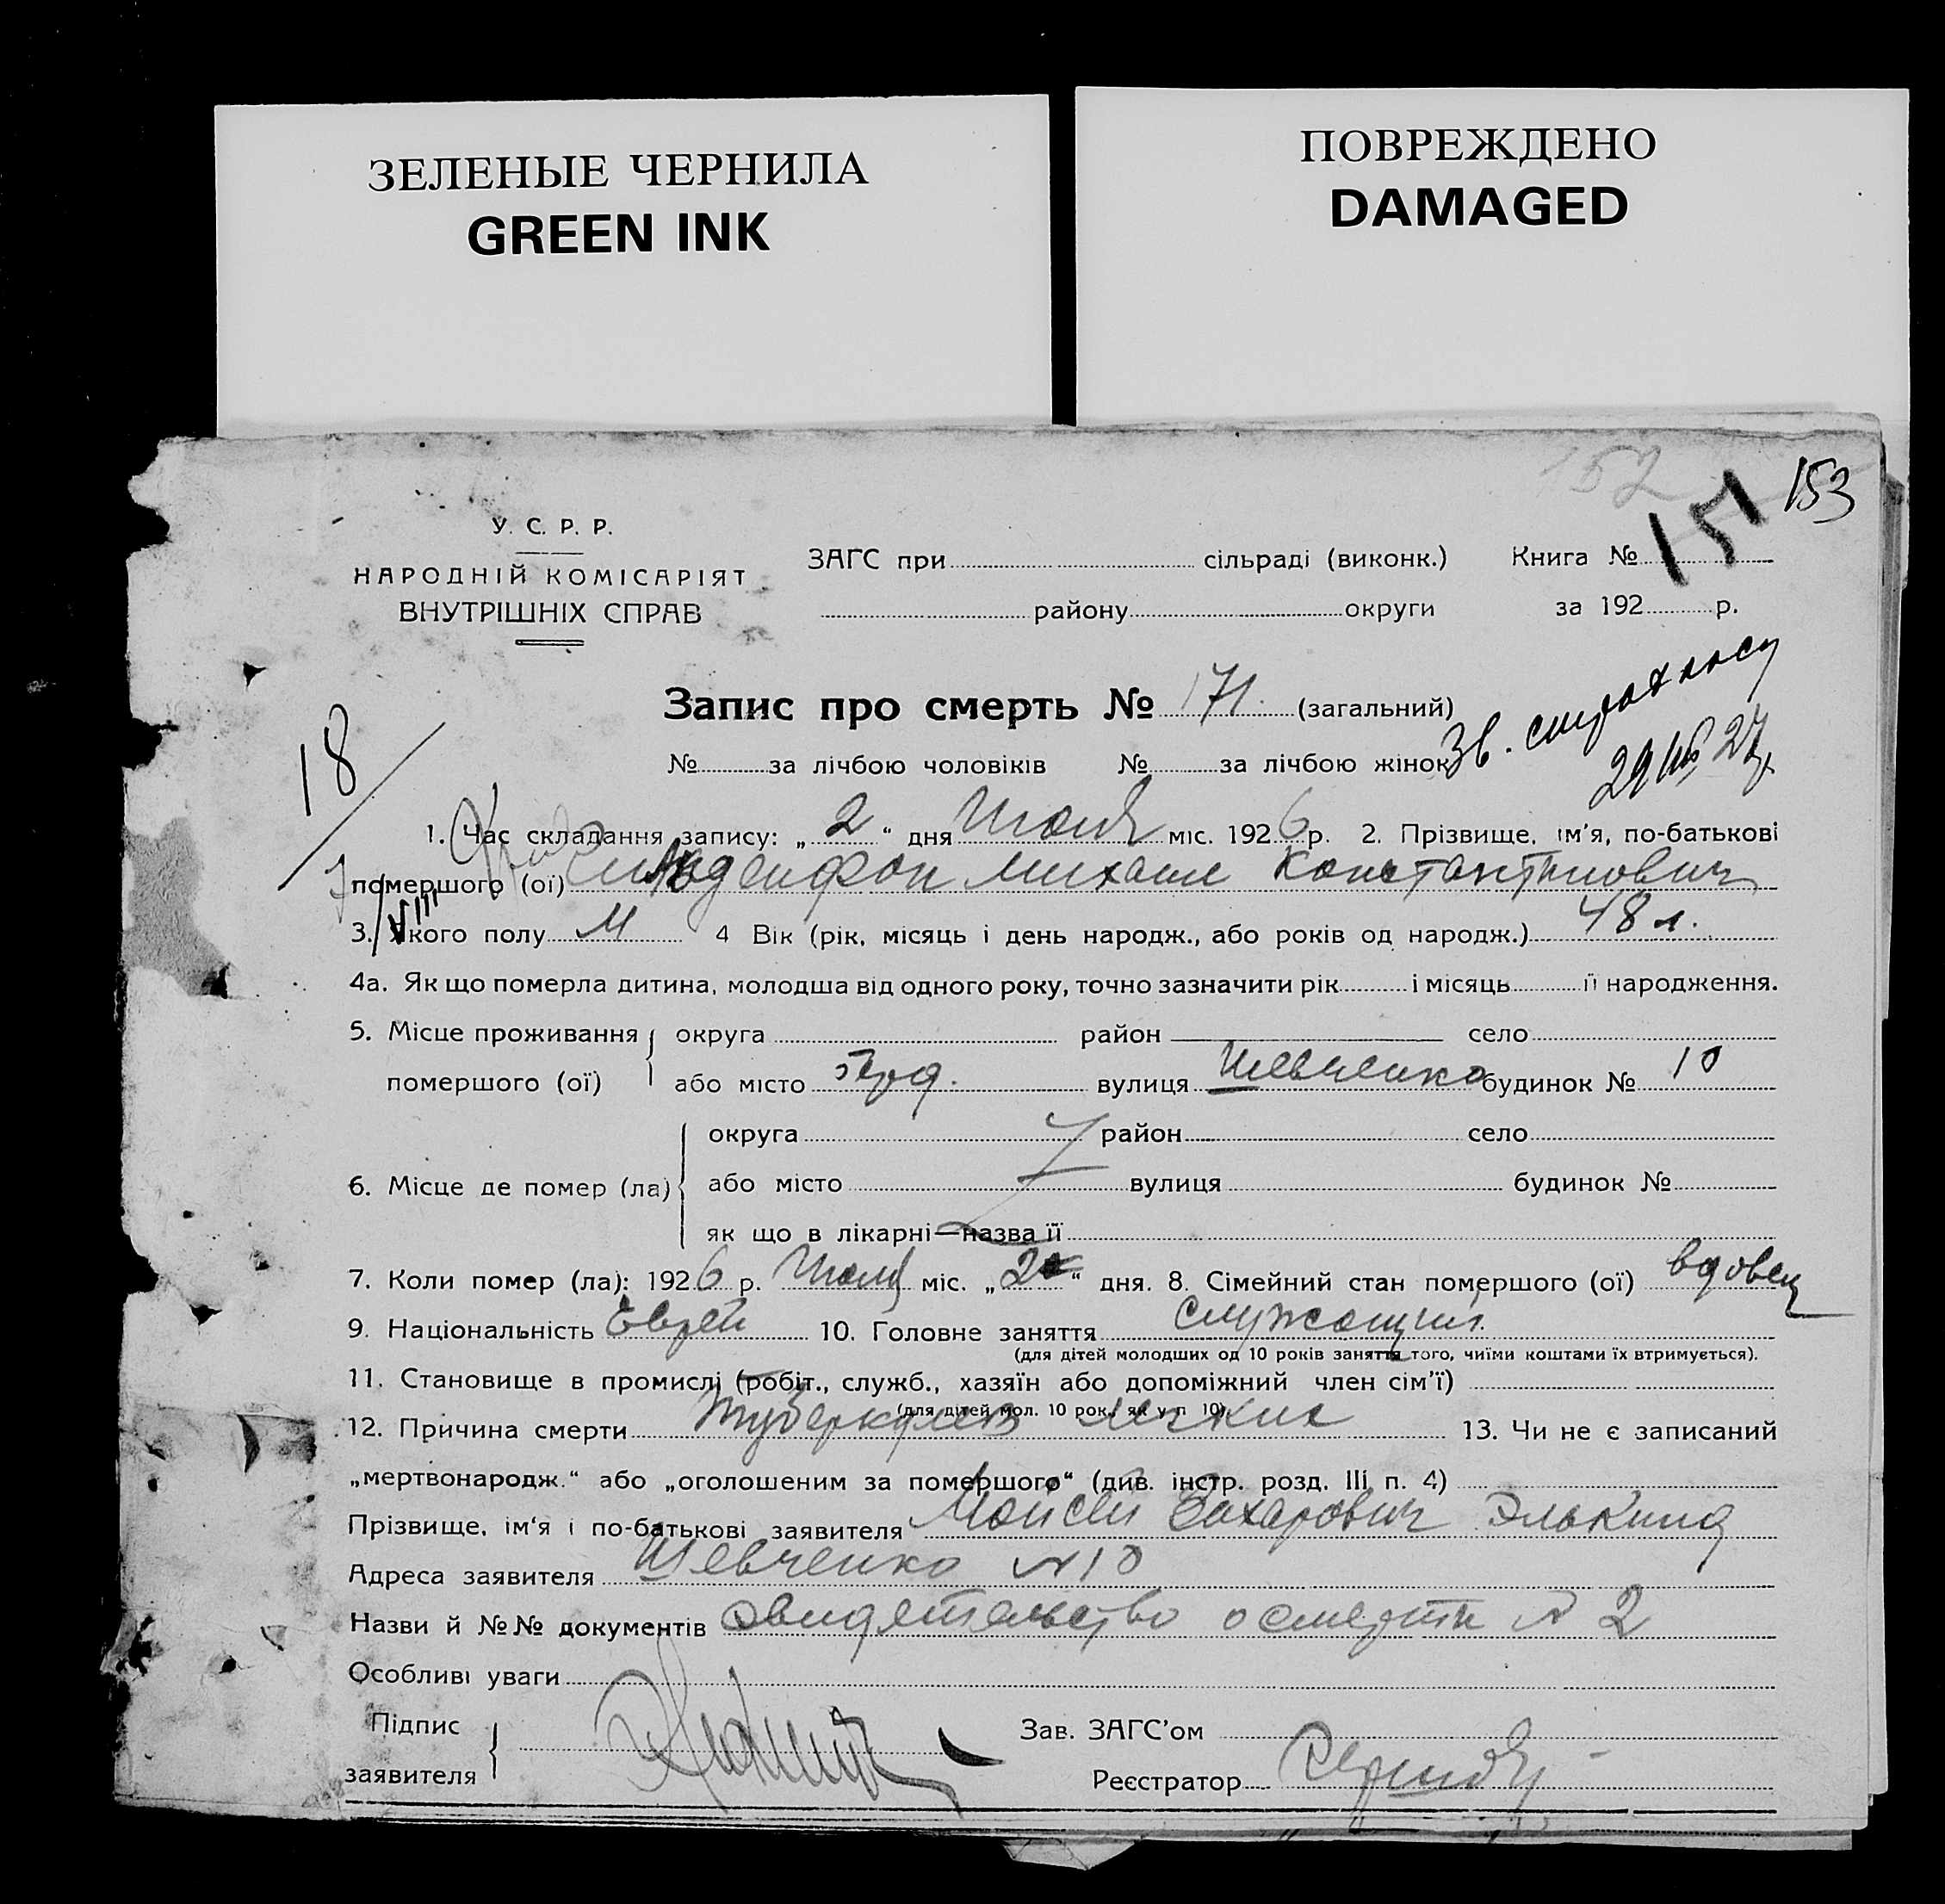 ЗЕЛЕНЫЕ ЧЕРНИЛА
GREEN INK
ПОВРЕЖДЕНО
DAMAGED
152
153
151
У. С. Р. Р.
НАРОДНІЙ КОМІСАРІЯТ
ВНУТРІШНІХ СПРАВ
ЗАГС при сільраді (виконк.) Книга №
району округи за 192 р.
Запис про смерть № 171. (загальний)
№ за лічбою чоловіків № за лічбою жінок
Зв.
18
1. Час складання запису: „2“ дня Июля міс. 1926 р. 2. Прізвище, ім'я, по-батькові
помершого (ої) Михаил Константинович
VIII
3. Якого полу М 4 Вік (рік, місяць і день народж., або років од народж.) 48 л.
4а. Як що померла дитина, молодша від одного року, точно зазначити рік і місяць її народження.
5. Місце проживання округа район село
помершого (ої) або місто вулиця Шевченко будинок № 10
округа район село
6. Місце де помер (ла) або місто вулиця будинок №
як що в лікарні—назва її
7. Коли помер (ла): 1926 р. Июля міс. „2“ дня. 8. Сімейний стан помершого (ої) вдовец
9. Національність Еврей 10. Головне заняття служащий
(для дітей молодших од 10 років заняття того, чиїми коштами їх втримується).
11. Становище в промислі (робіт., служб., хазяїн або допоміжний член сім'ї)
(для дітей мол. 10 рок., як у п 10)
12. Причина смерти Туберкулез легких 13. Чи не є записаний
„мертвонародж.“ або „оголошеним за помершого“ (див. інстр. розд. III п. 4)
Прізвище, ім'я і по-батькові заявителя Моисей Захарович Элькинд
Адреса заявителя Шевченко №10
Назви й №№ документів Свидетельство о смерти № 2
Особливі уваги
Підпис
заявителя
Зав. ЗАГС'ом
Реєстратор